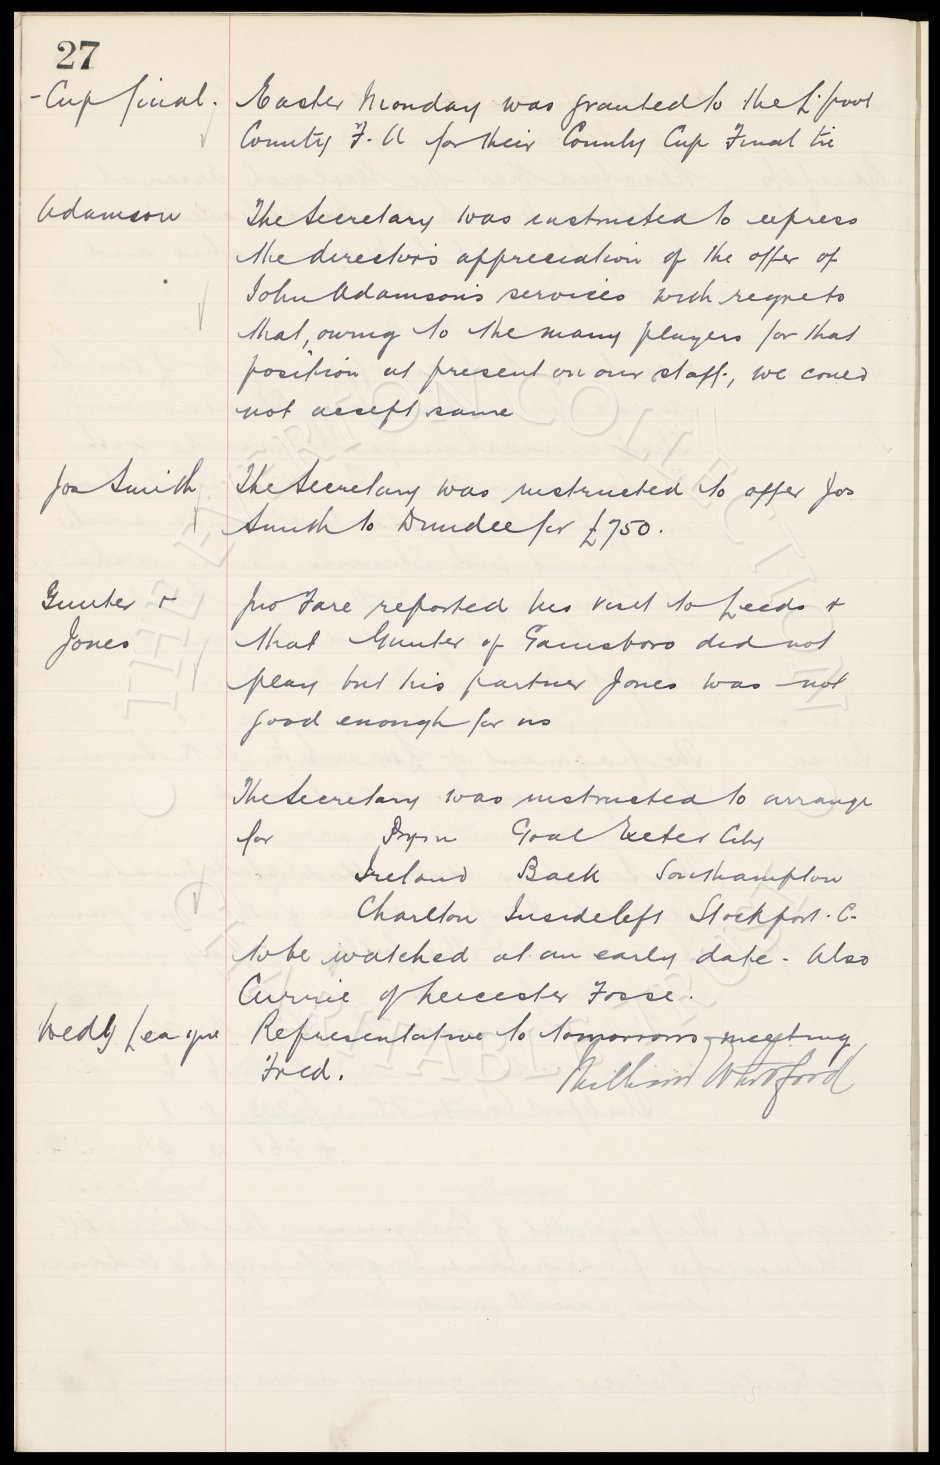 27
- Cup final. Easter Monday was granted to the L'pool
County F. A for their County Cup Final tie
Adamson The Secretary was instructed to express
the director's appreciation of the offer of
John Adamson's services with regrets
that, owing to the many players for that
position at present on our staff, we could
not accept same
Jos Smith The Secretary was instructed to offer Jos
Smith to Dundee for £750.
Gunter + Jno Fare reported his visit to Leeds +
Jones that Gunter of Gainsboro did not
play but his partner Jones was not
good enough for us
The Secretary was instructed to arrange
for Pym Goal Exeter City
Ireland Back Southampton
Charlton Inside left Stockport. C.
to be watched at an early date. Also
Currie of Leicester Fosse.
Wedy League Representative to tomorrows meeting
Fred. William Whitford
THE EVERTON COLLECTION
CHARITABLE TRUST
©